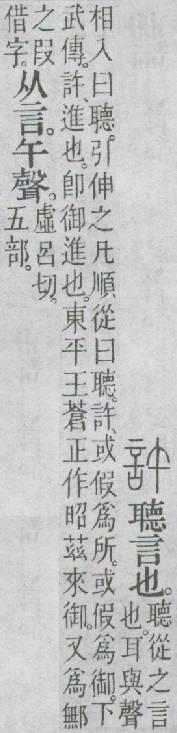 許 聽言也。
聽從之言
也。耳與聲
相入曰聽。引伸之凡順從曰聽。許、或假爲所。或假爲御。下
武傳。許、進也。卽御進也。東平王蒼正作昭茲來御。又爲鄦
之叚
借字。
从言。午聲。
虛呂切。
五部。